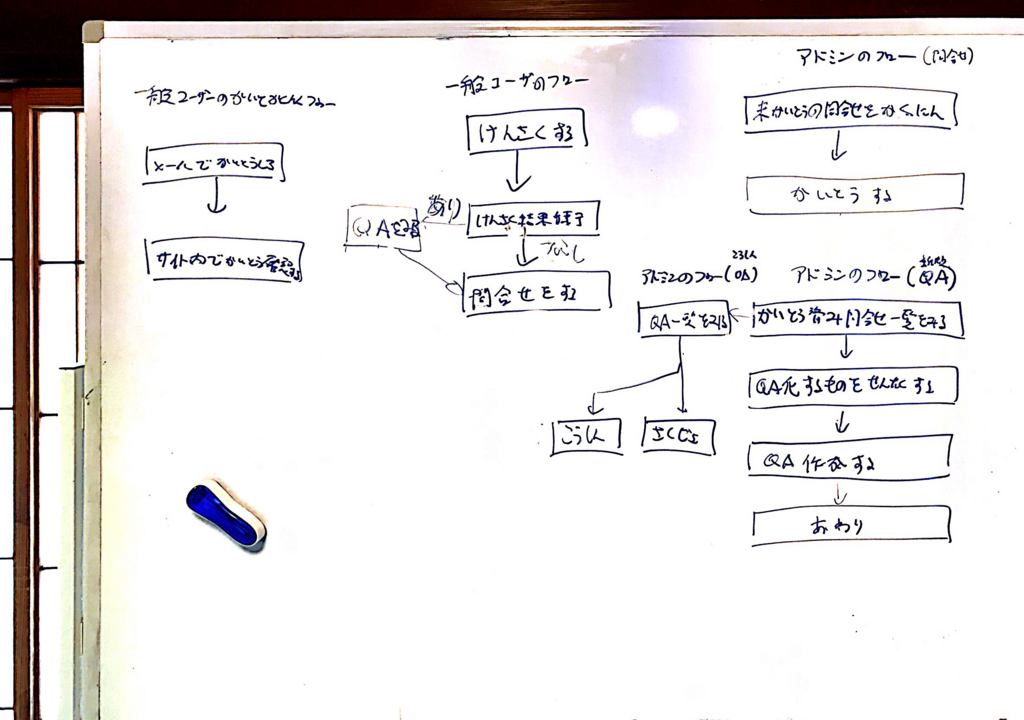 一般ユーザーのかいとかくにんフロー
メールでかいとうくる
サイト内でかいとう確認する
一般ユーザのフロー
けんさくする
けんさく結果終了
あり
QAをみる
なし
問合せをする
アドミンのフロー(問合せ)
未かいとうの問合せをかくにん
かいとうする
アドミンのフロー(QA)
QA一覧をみる
こうしん
さくじょ
アドミンのフロー(QA)
新規
かいとう済み問合せ一覧をみる
QA化するものをせんたくする
QA作成する
おわり